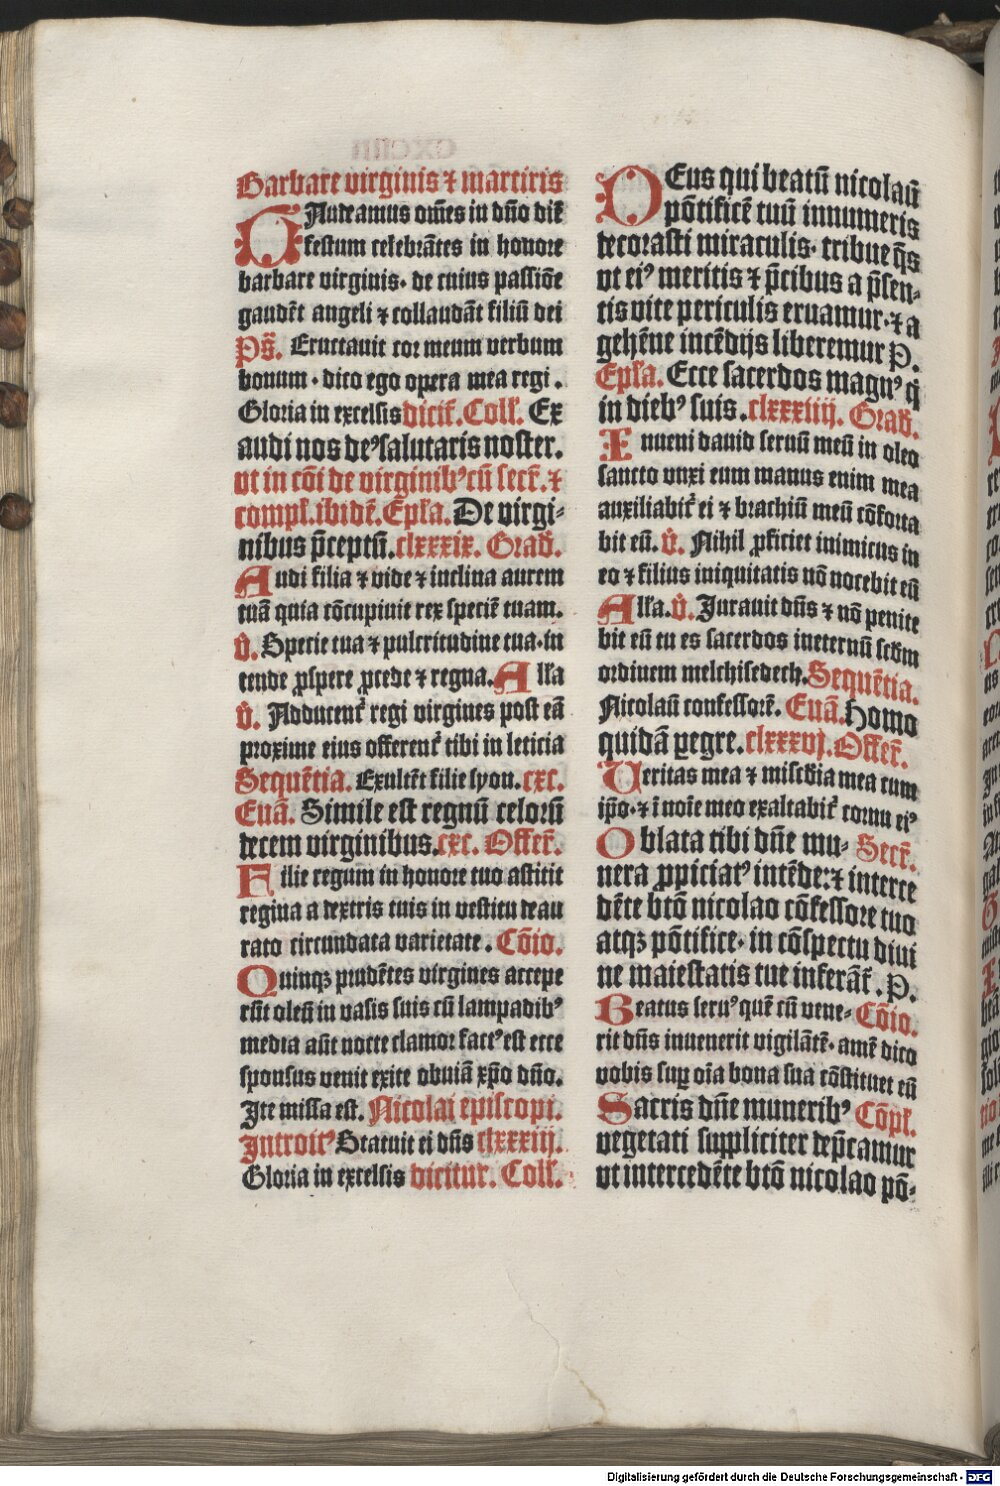 Barbare virginis ⁊ martiris
GAudeamus om̄es in dn̄o diē
festum celebrātes in honore
barbare virginis· de cuius passiōe
gaudēt angeli ⁊ collaudāt filiū dei
Ps̄. Eructauit cor meum verbum
bonum · dico ego opera mea regi .
Gloria in excelsis dicit̄. Coll̄. Ex
audi nos deꝰ salutaris noster.
vt in cōi de virginibꝰ cū secr̄. ⁊
compl̄. ibidē. Ep̄la. De virgi⸗
nibus p̄ceptū. clxxxix. Grad̄.
Audi filia ⁊ vide ⁊ inclina aurem
tuā quia cōcupiuit rex speciē tuam.
v̄. Specie tua ⁊ pulcritudine tua·in
tende ꝓspere ꝓcede ⁊ regna. Alla
v̄. Adducent̄ regi virgines post eā
proxime eius offerent̄ tibi in leticia
Sequētia. Exultēt filie syon. cxc.
Euā. Simile est regnū celorū
decem virginibus. cxc. Offer̄.
Filie regum in honore tuo astitit
regina a dextris tuis in vestitu deau
rato circundata varietate . Cōio.
Quinqꝫ prudētes virgines accepe
rūt oleū in vasis suis cū lampadibꝰ
media aūt nocte clamor factꝰ est ecce
sponsus venit exite obuiā xp̄o dn̄o.
Ite missa est. Nicolai episcopi.
Introitꝰ Statuit ei dn̄s clxxxiij.
Gloria in excelsis dicitur. Coll̄.
DEus qui beatū nicolaū
pōtificē tuū innumeris
decorasti miraculis· tribue q̄s
vt eiꝰ meritis ⁊ p̄cibus a p̄sen⸗
tis vite periculis eruamur·⁊ a
gehēne incēdijs liberemur P.
Ep̄la. Ecce sacerdos magnꝰ q̄
in diebꝰ suis . clxxxiiij. Grad̄.
Inueni dauid seruū meū in oleo
sancto vnxi eum manus enim mea
auxiliabit̄ ei ⁊ brachiū meū cōforta
bit eū. v̄. Nihil ꝓficiet inimicus in
eo ⁊ filius iniquitatis nō nocebit eū
Alla. v̄. Jurauit dn̄s ⁊ nō penite
bit eū tu es sacerdos ineternū scd̄m
ordinem melchisedech. Sequētia.
Nicolaū confessorē. Euā. Homo
quidā peregre. clxxxvj. Offer̄.
Veritas mea ⁊ mis̄cdia mea cum
ip̄o·⁊ ī noīe meo exaltabit̄ cornu eiꝰ
Oblata tibi dn̄e mu⸗ Secr̄.
nera ꝓpiciatꝰ intēde:⁊ interce
dēte btō nicolao cōfessore tuo
atqꝫ pōtifice· in cōspectu diui
ne maiestatis tue inferāt̄ . P.
Beatus seruꝰ quē cū vene⸗ Cōio.
rit dn̄s inuenerit vigilātē· amē dico
vobis sup̄ oīa bona sua cōstituet eū
Sacris dn̄e muneribꝰ Cōpl̄.
vegetati suppliciter dep̄camur
vt intercedēte btō nicolao pō⸗
Digitalisierung gefördert durch die Deutsche Forschungsgemeinschaft · DFG